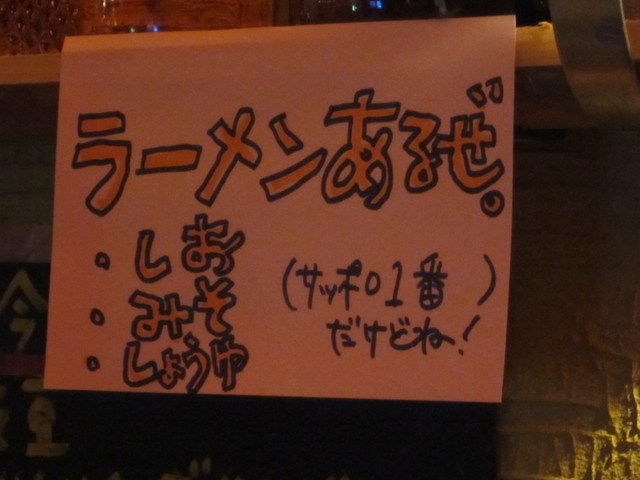 ラーメンあるぜ。
・しお
・みそ
・しょうゆ
(サッポロ1番)
だけどね!
今